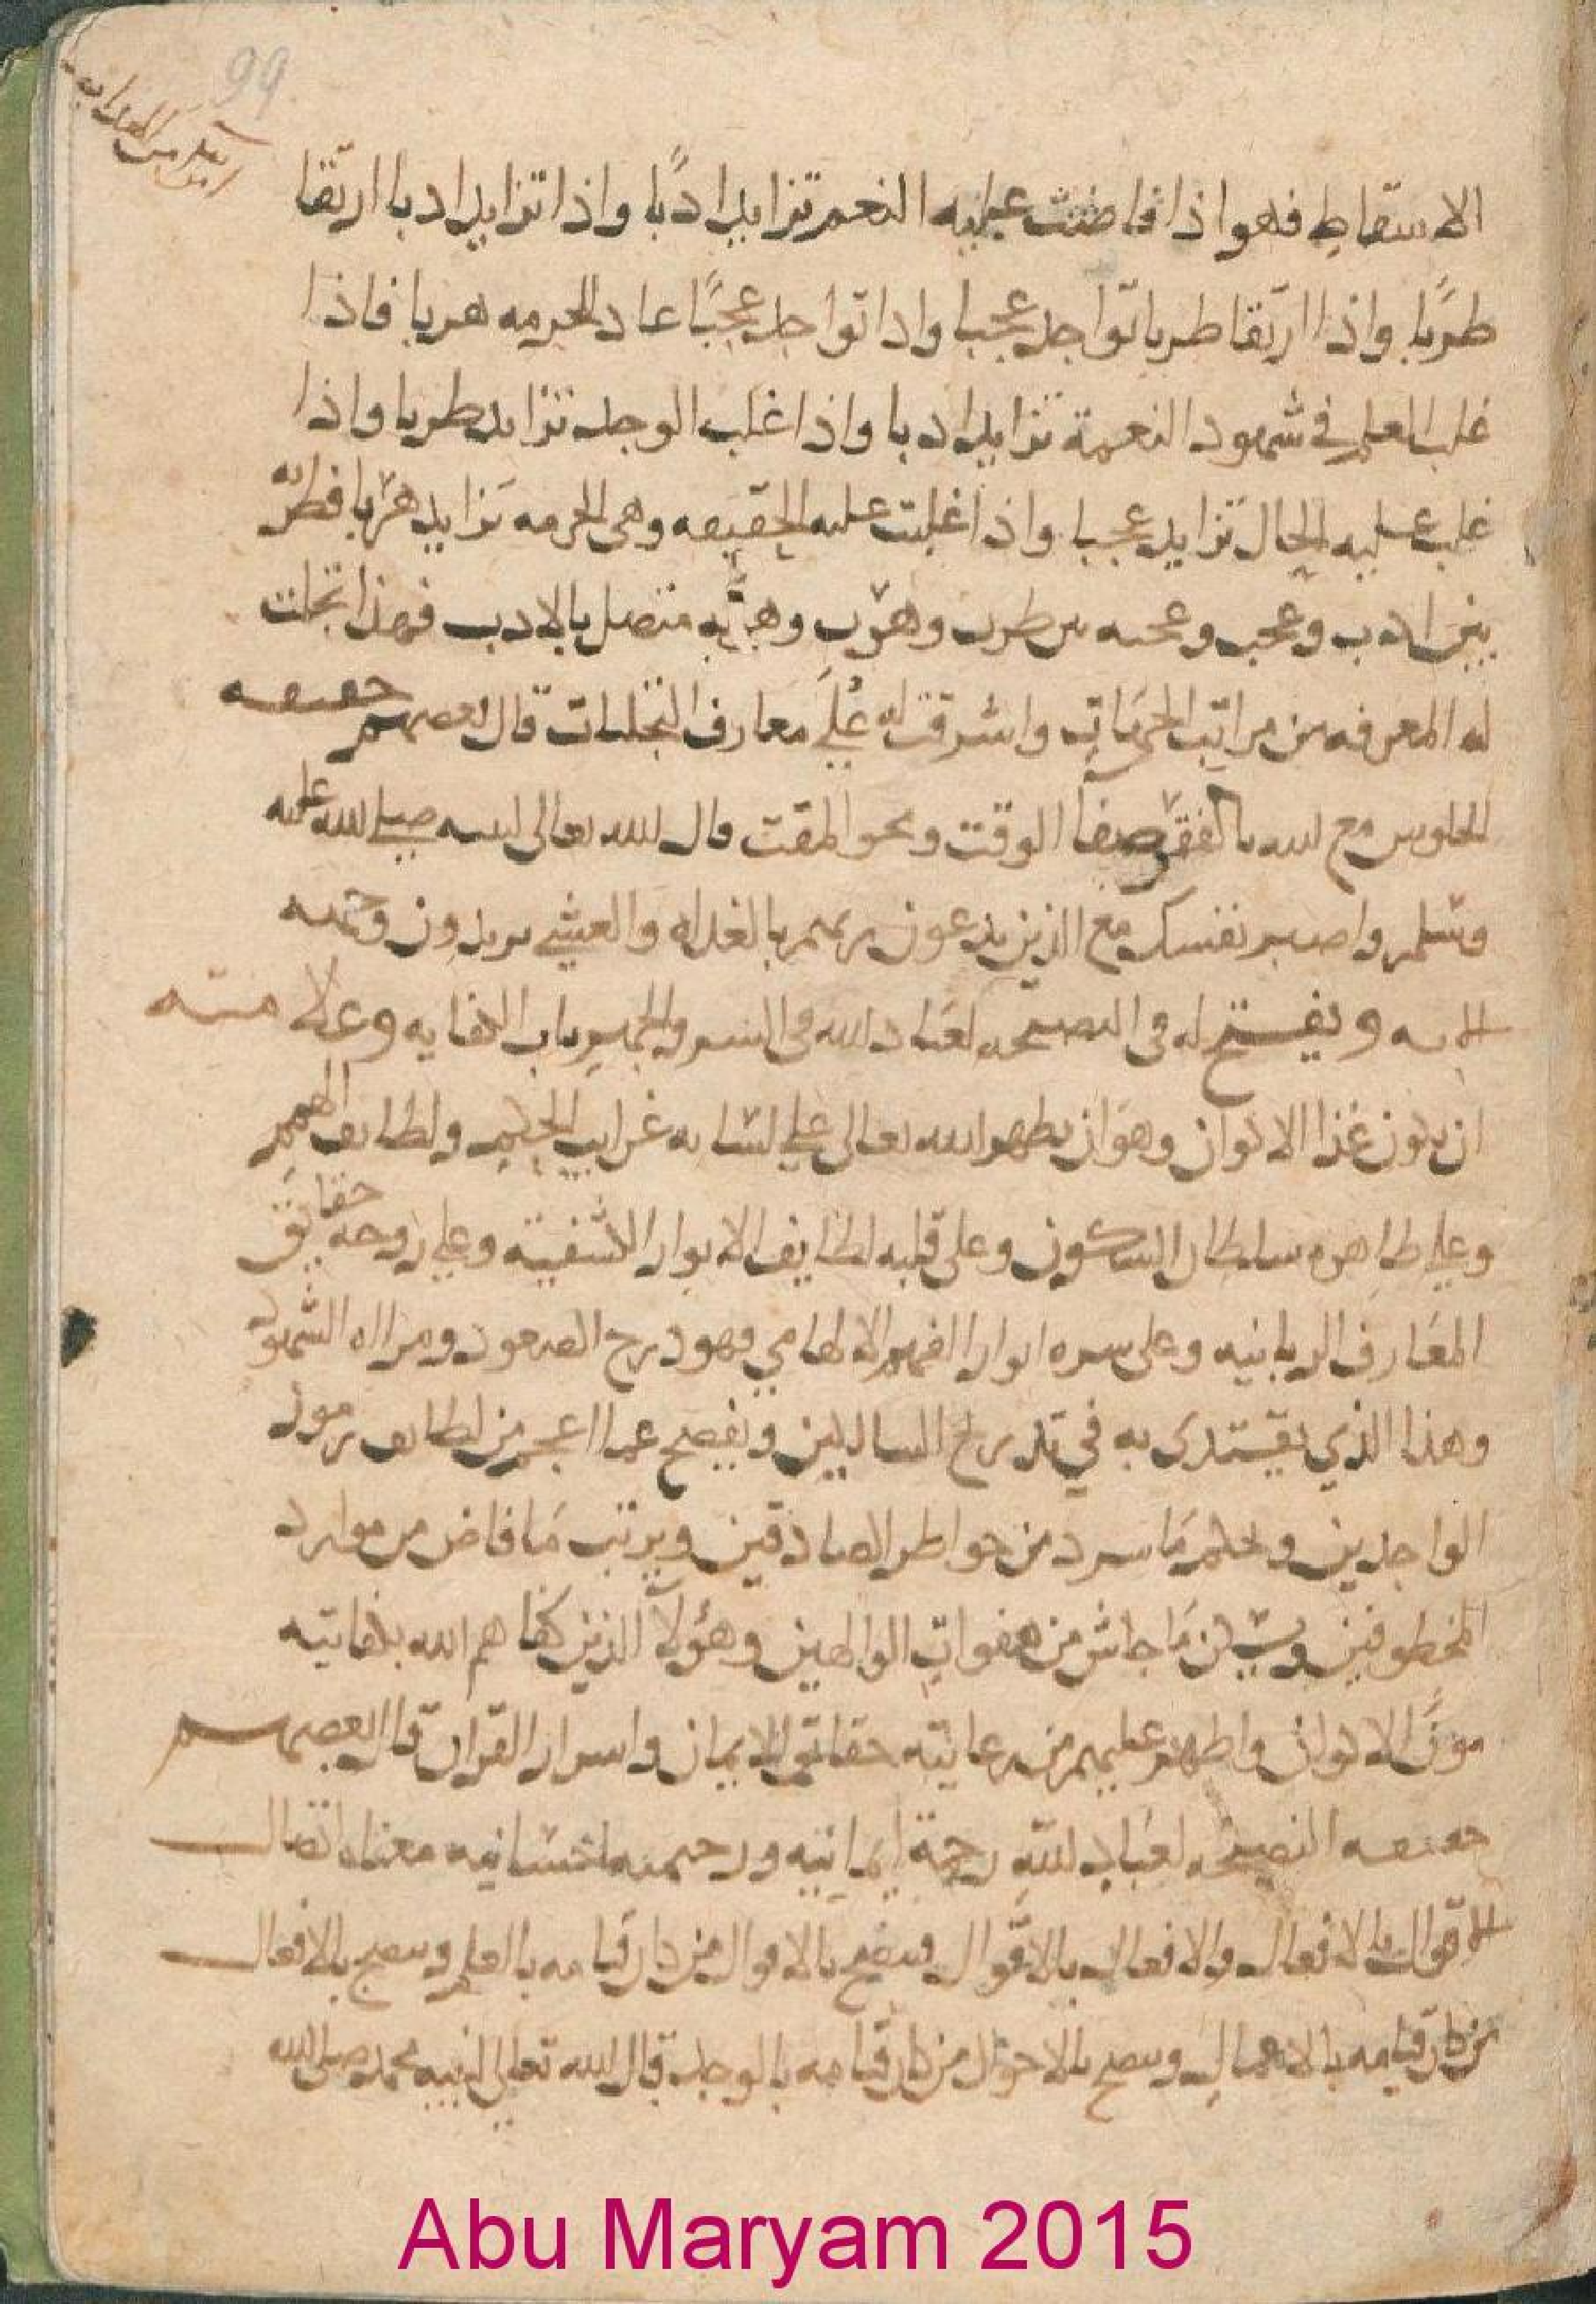 99
الاستقاط فهو اذا فاضت عليه النعم تزايد ادبًا واذا تزايد ادبا ارتقا
طربًا واذا ارتقا طربا تواجد عجبا واذا تواجد عجبًا عاد للحرمه هربا فاذا
غلب العلم في شهود النعمة تزايد ادبا واذا غلب الوجد تزايد طربا واذا
غلب عليه الحال تزايد عجبا واذا غلبت عليه الحقيقه وهي الحرمه تزايد هربا فطربه
بين ادب وعجب وعجبه بين طرب وهرب وهربه متصل بالادب فهذا تجلت
له المعرفه من مراتب الحرمات واشرقت له علي معارف التجليات قال بعضهم حقيقه
الجلوس مع الله بالفقر صفا الوقت ومحو المقت قال الله تعالى لنبيه صلى الله عليه
وسلم واصبر نفسك مع الذين يدعون ربهم بالغداه والعشي يريدون وجهه
الايه ويفتح له في النصيحه لعباد الله في السر والجهر باب الكفايه وعلامته
ان يكون غذا الاكوان وهو ان يظهر الله تعالى علي لسانه غرايب الحكم ولطايف الهمم
وعلي ظاهره سلطان السكون وعلى قلبه لطايف الانوار الكشفية وعلي روحه حقايق
المعارف الربانيه وعلى سره انوار الفهم الالهامي فهو درج الصعود ومراه الشهود
وهذا الذي يقتدى به في تدريج السالكين ويفصح عما اعجم من لطايف رموز
الواجدين ويحكم ما سرد من خواطر الصادقين ويرتب ما فاض من موارد
المخطوفين ويسكن ما جاش من هفوات الوالهين وهؤلآ الذين كفاهم الله بكفايته
مؤن الاكوان واظهر عليهم من رعايته حقائق الايمان واسرار القران قال بعضهم
حقيقه النصيحه لعباد الله رحمة ايمانيه ورحمه احسانيه معناه اتصال
الاقوال بالافعال والافعال بالاقوال فينصح بالاقوال من كان قيامه بالعلم وينصح بالافعال
من كان قيامه بالاعمال وينصح بالاحوال من كان قيامه بالوجد قال الله تعالى لنبيه محمد صلى الله
Abu Maryam 2015